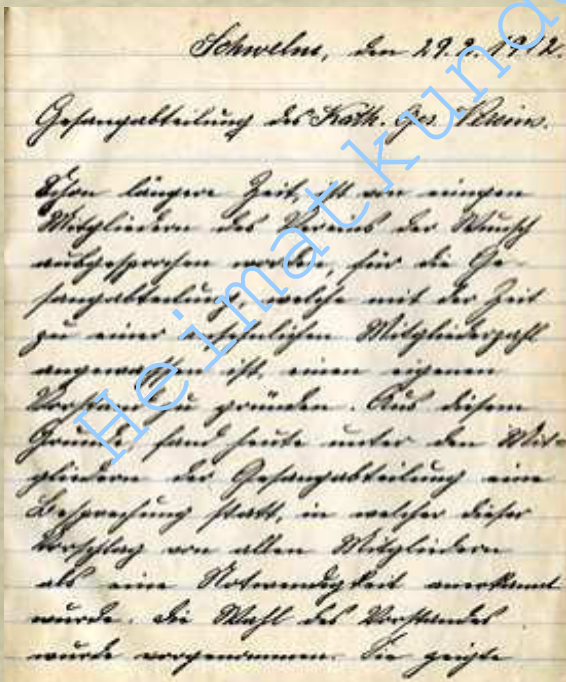 Schwelm, den 29.9.1912.
Gesangabteilung des Kath. Ges. Verein.
Schon längere Zeit, ist von einigen
Mitgliedern des Vereins der Wunsch
ausgesprochen worden, für die Ge-
sangabteilung, welche mit der Zeit
zu einer ansehnlichen Mitgliederzahl
angewachsen ist, einen eigenen
Vorstand zu gründen. Aus diesem
Grunde, fand heute unter den Mit-
gliedern der Gesangabteilung eine
Besprechung statt, in welcher dieser
Vorschlag von allen Mitgliedern
als eine Notwendigkeit anerkannt
wurde. Die Wahl des Vorstandes
wurde vorgenommen. Sie zeigte
Heimatkund